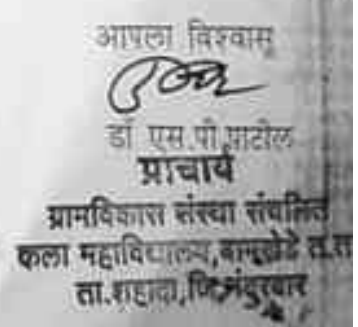 आपला विश्वासू
डॉ एस.पी.पाटील
प्राचार्य
ग्रामविकास संस्था संचलित
कला महाविद्यालय,बामखेडे त.त
ता.शहादा,जि.नंदुरबार